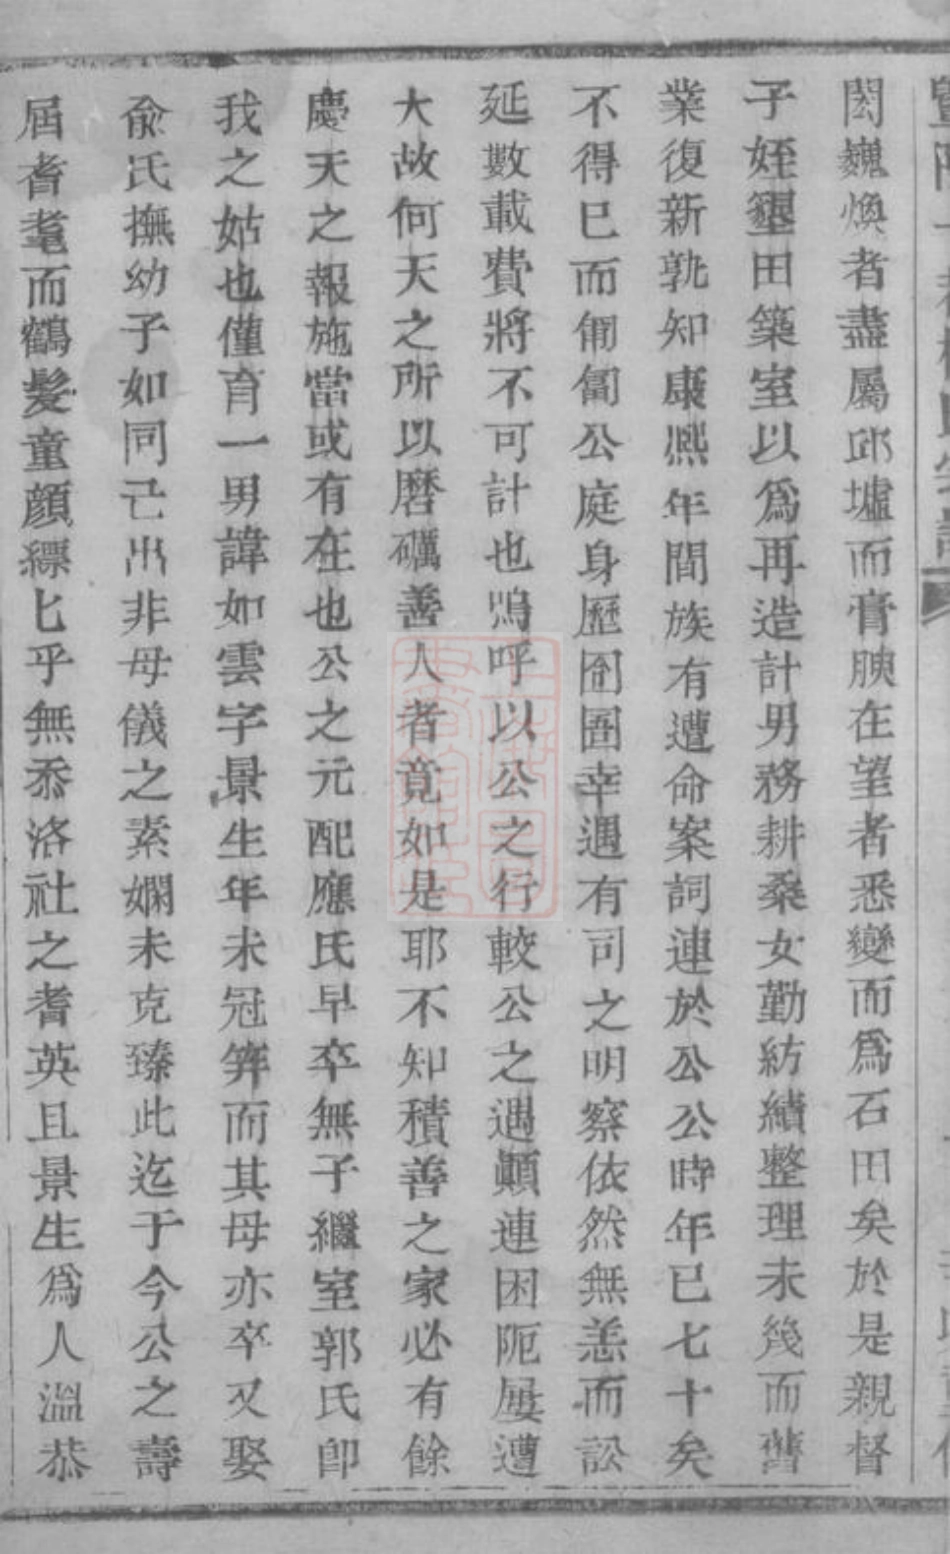 閎巍煥者盡屬邱墟而膏腴在望者悉變而爲石田矣於是親督
子姪墾田築室以爲再造計男務耕桑女勤紡績整理未幾而舊
業復新孰知康熙年間族有遭命案詞連於公公時年已七十矣
不得已而匍匐公庭身歷囹圄幸遇有司之明察依然無恙而訟
延數載費將不可計也嗚呼以公之行較公之遇顛連困阨屢遭
大故何天之所以磨礪善人者竟如是耶不知積善之家必有餘
慶天之報施當或有在也公之元配應氏早卒無子繼室郭氏即
我之姑也僅育一男諱如雲字景生年未冠笄而其母亦卒又娶
俞氏撫幼子如同己出非母儀之素嫻未克臻此迄于今公之壽
屆耆耄而鶴髮童顏縹匕乎無忝洛社之耆英且景生爲人溫恭